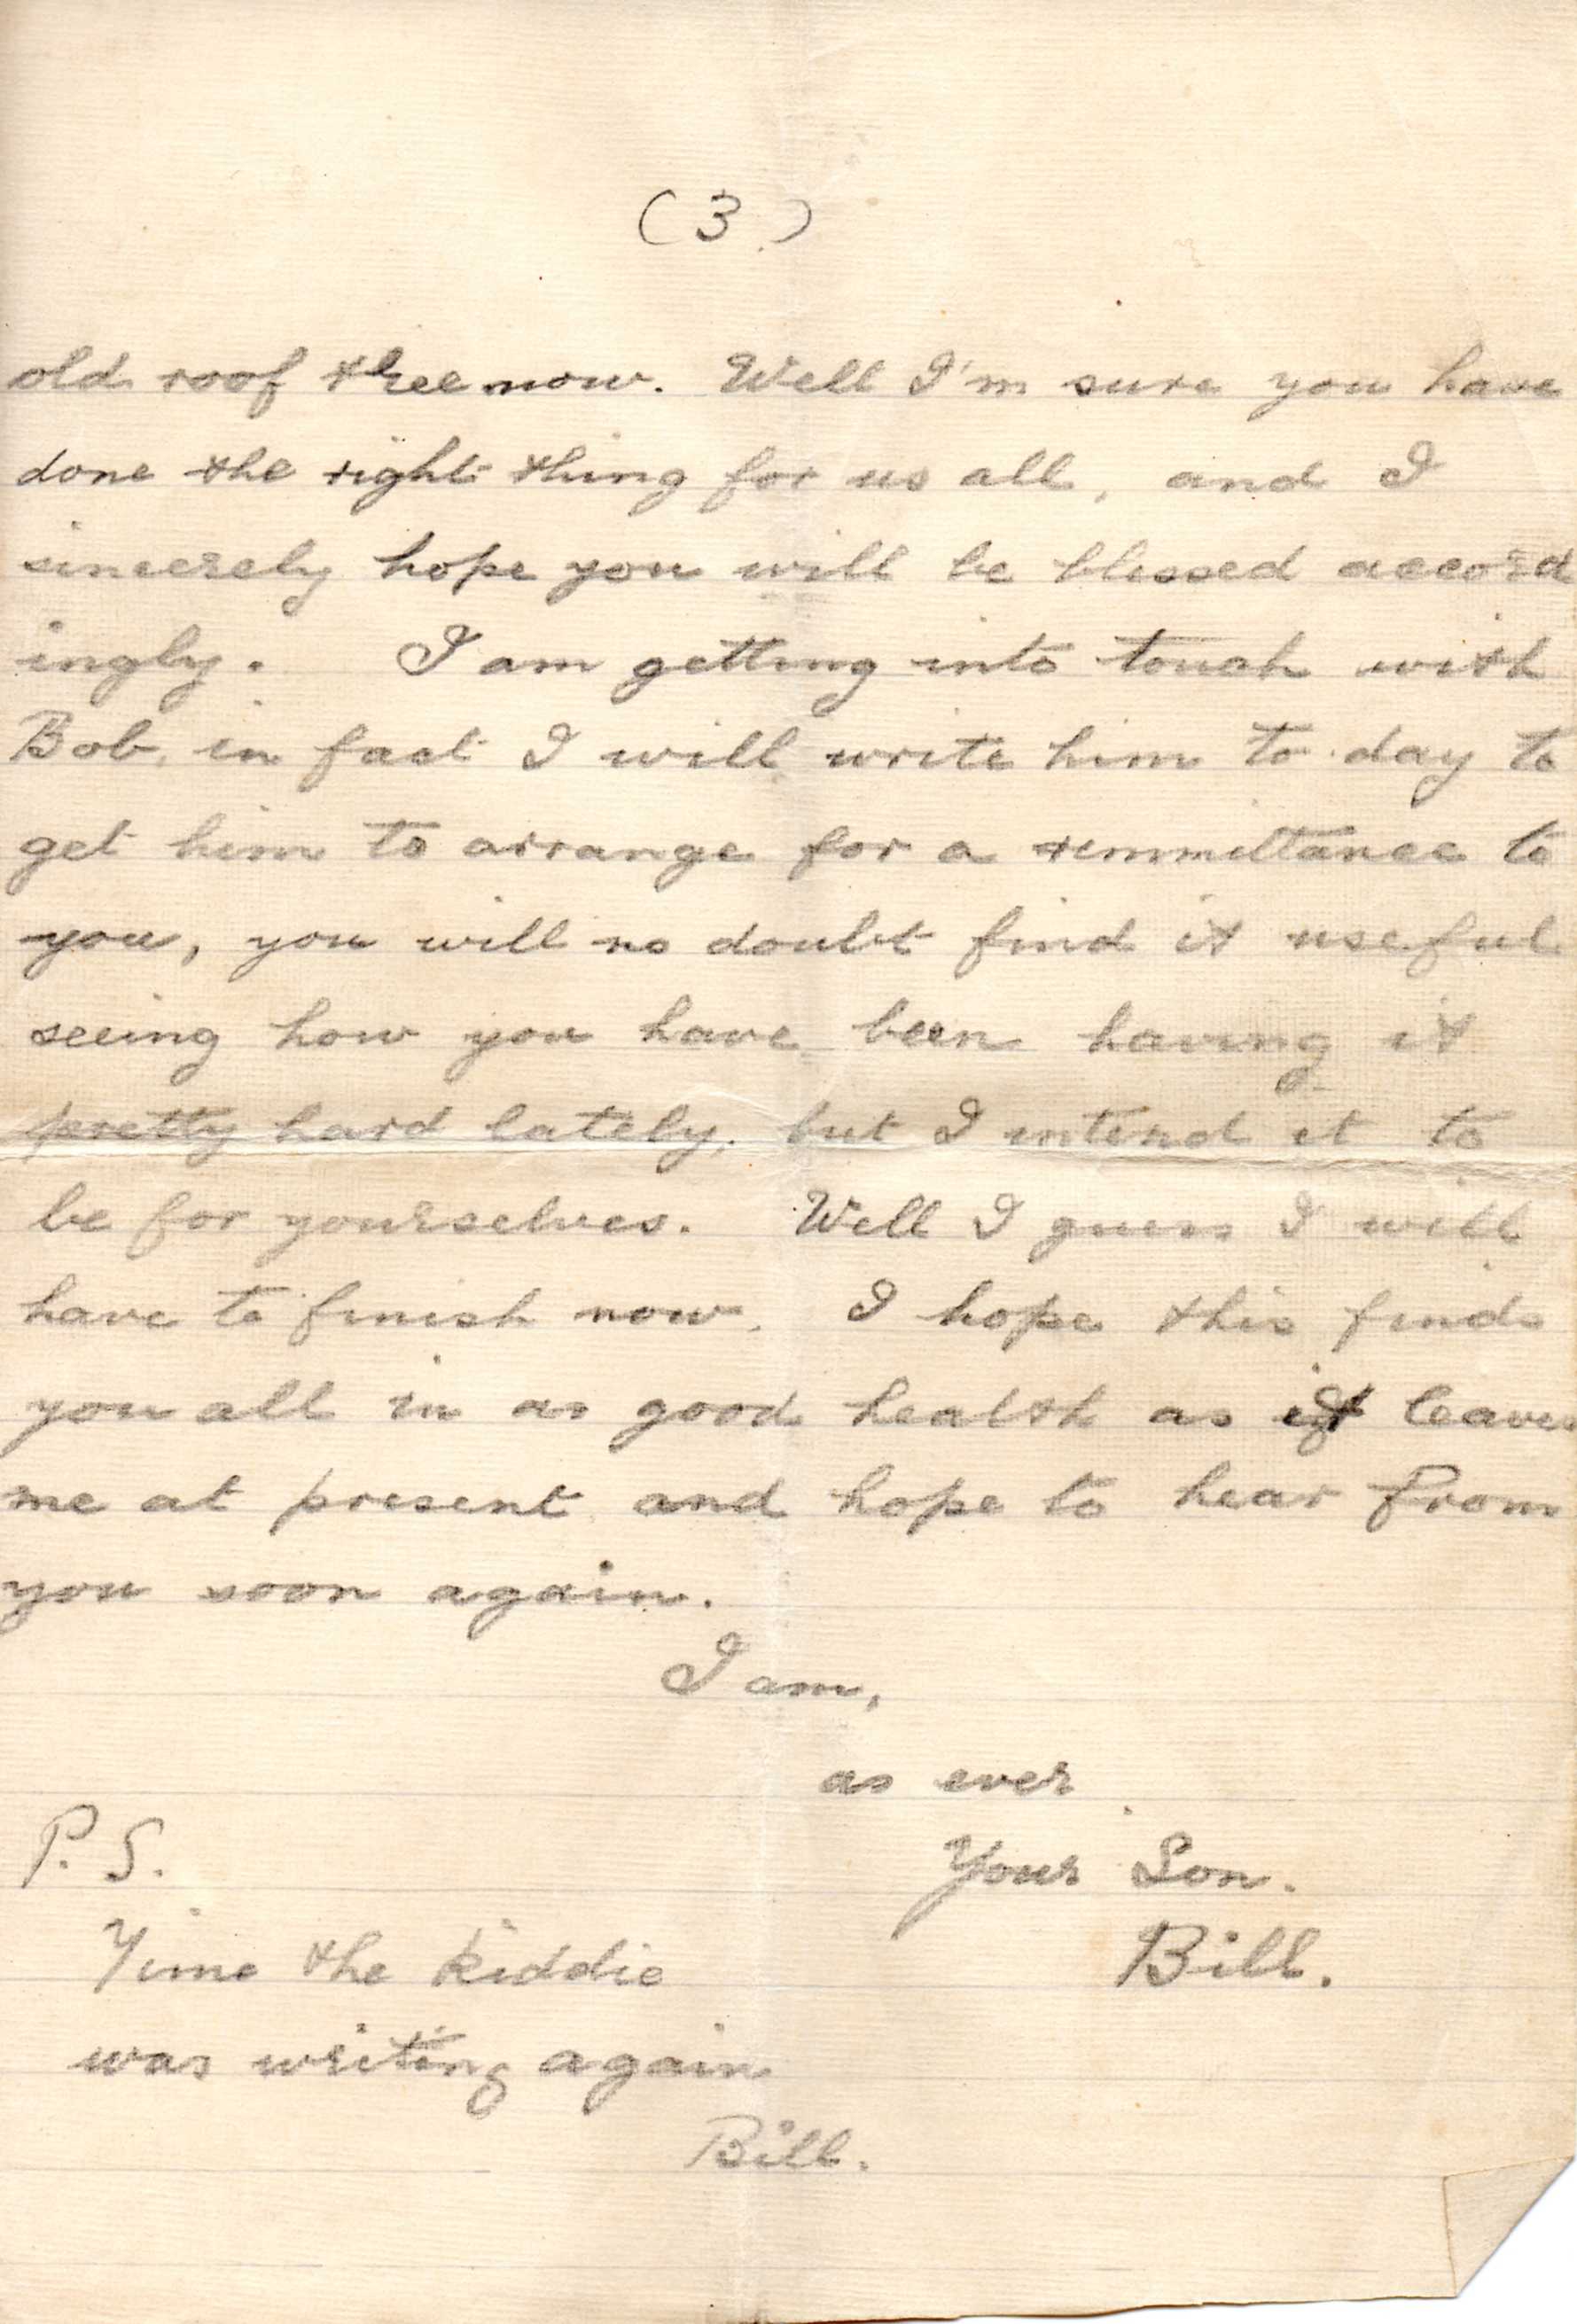 (3.)
old roof tree now. Well I'm sure you have
done the right thing for us all, and I
sincerely hope you will be blessed accord
ingly. I am getting into touch with
Bob, in fact I will write him to day to
get him to arrange for a remmittance to
you, you will no doubt find it useful
seeing how you have been having it
pretty hard lately, but I intend it to
be for yourselves. Well I guess I will
have to finish now. I hope this finds
you all in as good health as it leaves
me at present and hope to hear from
you soon again.
I am,
as ever
Your Son.
Bill.
P. S.
Time the kiddie
was writing again
Bill.